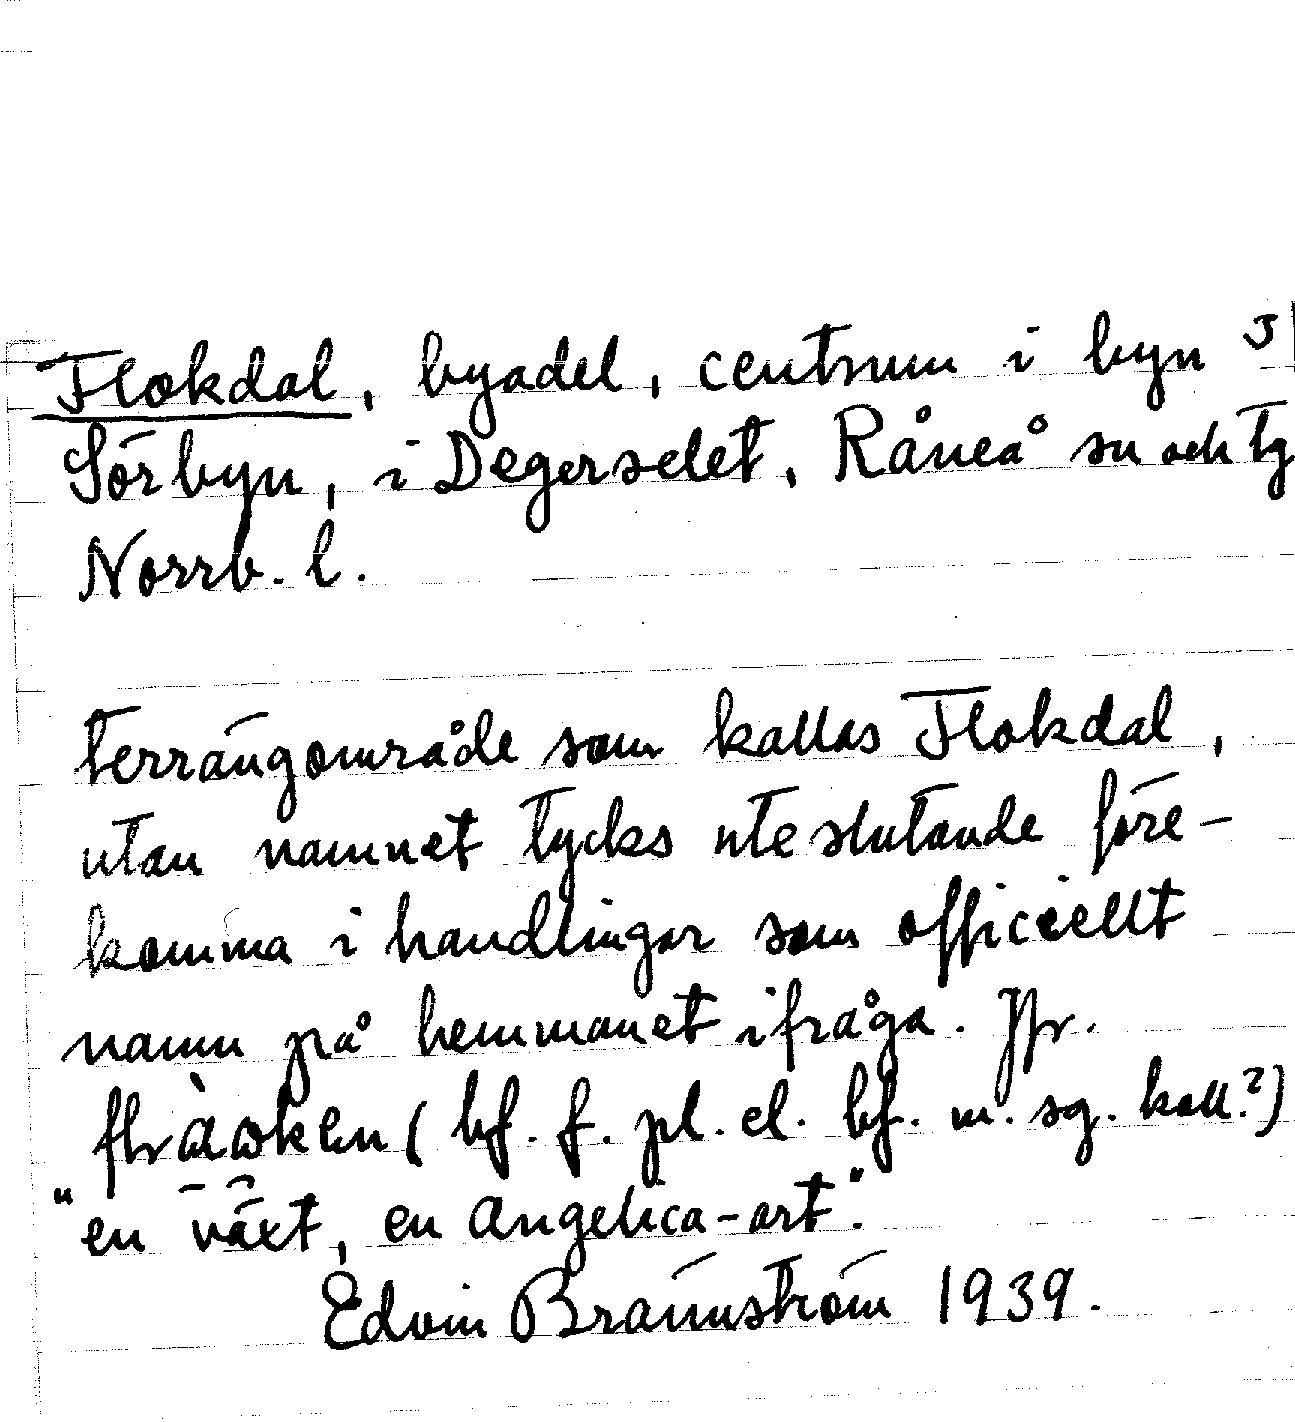 Flokdal, byadel, centrum i byn
Sörbyn, i Degerselet, Råneå sn och tg
Norrb. l.
terrängområde som kallas Flokdal,
utan namnet tycks uteslutande före-
komma i handlingar som officiellt
namn på hemmanet ifråga. Jfr.
(bf. f. pl. el. bf. m. sg. koll.?)
"en växt, en Angelica-art".
Edvin Brännström 1939.